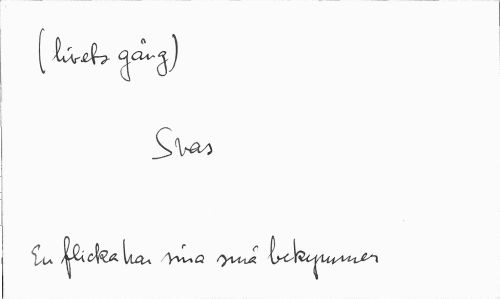 (livets gång)
Svas
En flicka har sina små bekymmer